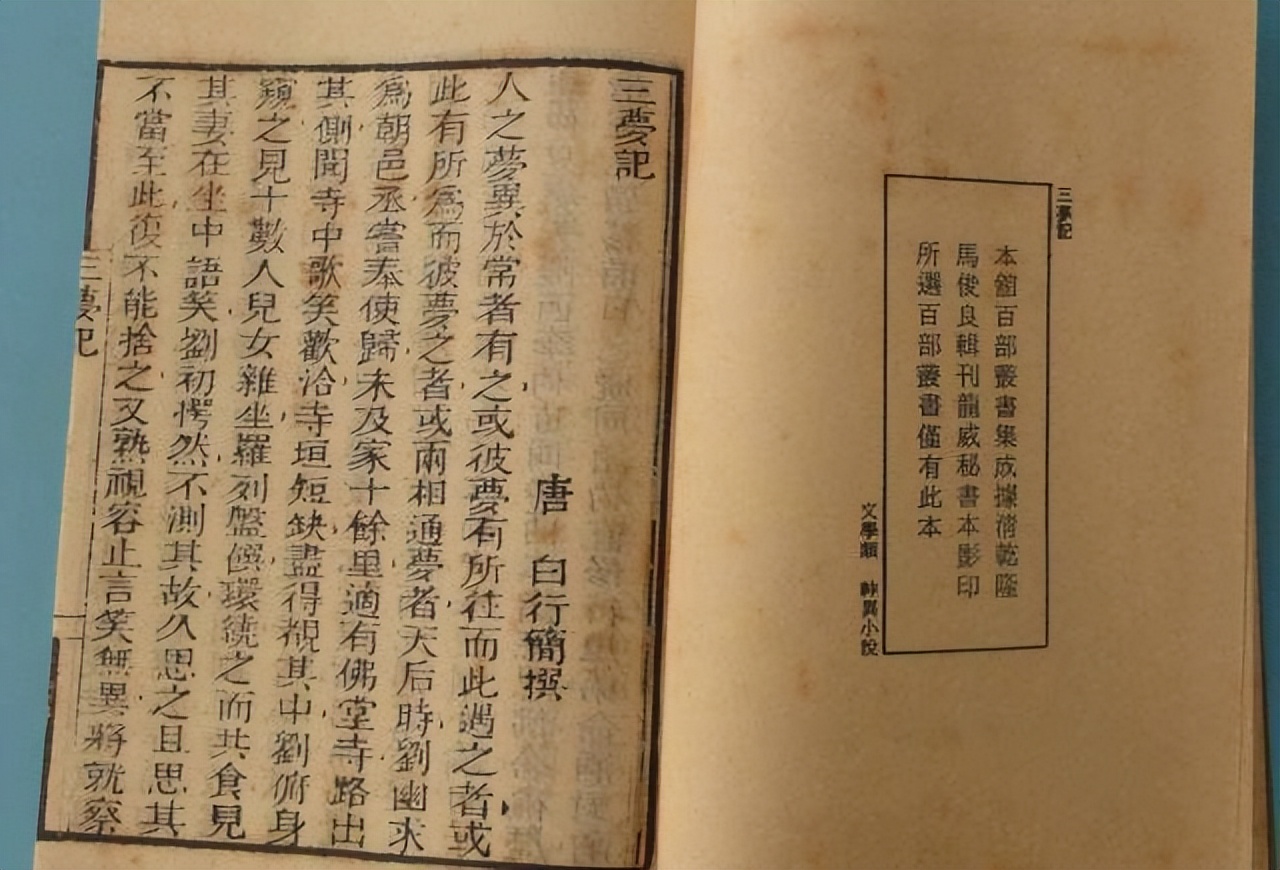 三夢記
本館百部叢書集成據清乾隆
馬俊良輯刊龍威秘書本影印
所選百部叢書僅有此本
文學類 神異小說
三夢記
唐 白行簡撰
人之夢異於常者有之或彼夢有所往而此遇之者或
此有所爲而彼夢之者或兩相通夢者天后時劉幽求
爲朝邑丞嘗奉使歸未及家十餘里適有佛堂寺路出
其側聞寺中歌笑歡洽寺垣短缺盡得覩其中劉俯身
窺之見十數人兒女雜坐羅列盤饌環繞之而共食見
其妻在坐中語笑劉初愕然不測其故久思之且思其
不當至此復不能捨之又熟視容止言笑無異將就察
三夢記